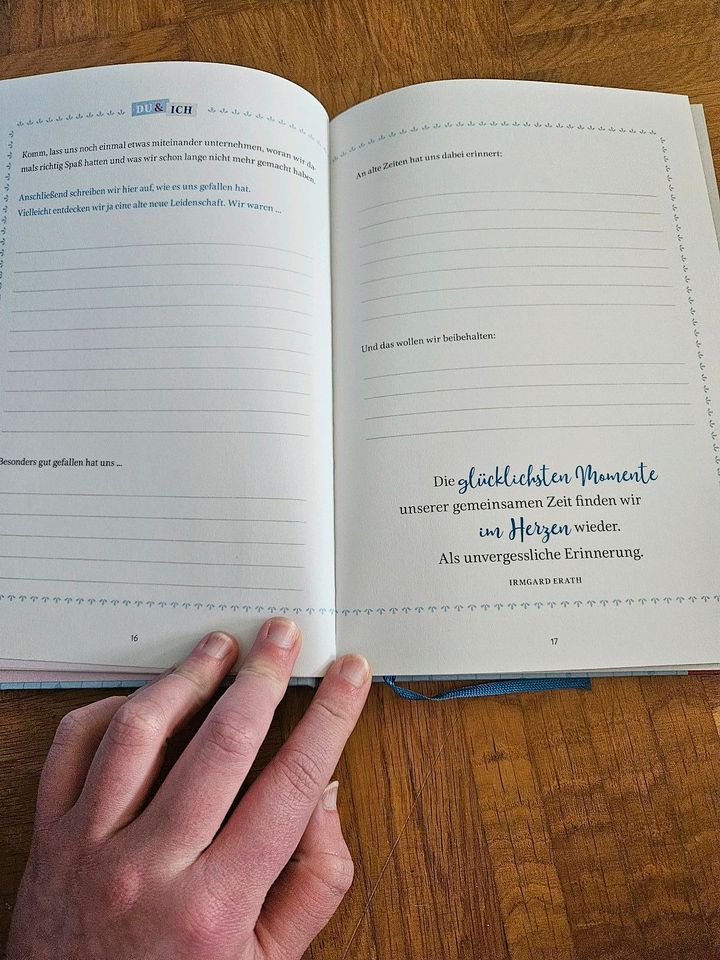 DU & ICH
Komm, lass uns noch einmal etwas miteinander unternehmen, woran wir da-
mals richtig Spaß hatten und was wir schon lange nicht mehr gemacht haben.
Anschließend schreiben wir hier auf, wie es uns gefallen hat.
Vielleicht entdecken wir ja eine alte neue Leidenschaft. Wir waren ...
Besonders gut gefallen hat uns ...
16
An alte Zeiten hat uns dabei erinnert:
Und das wollen wir beibehalten:
Die glücklichsten Momente
unserer gemeinsamen Zeit finden wir
im Herzen wieder.
Als unvergessliche Erinnerung.
IRMGARD ERATH
17